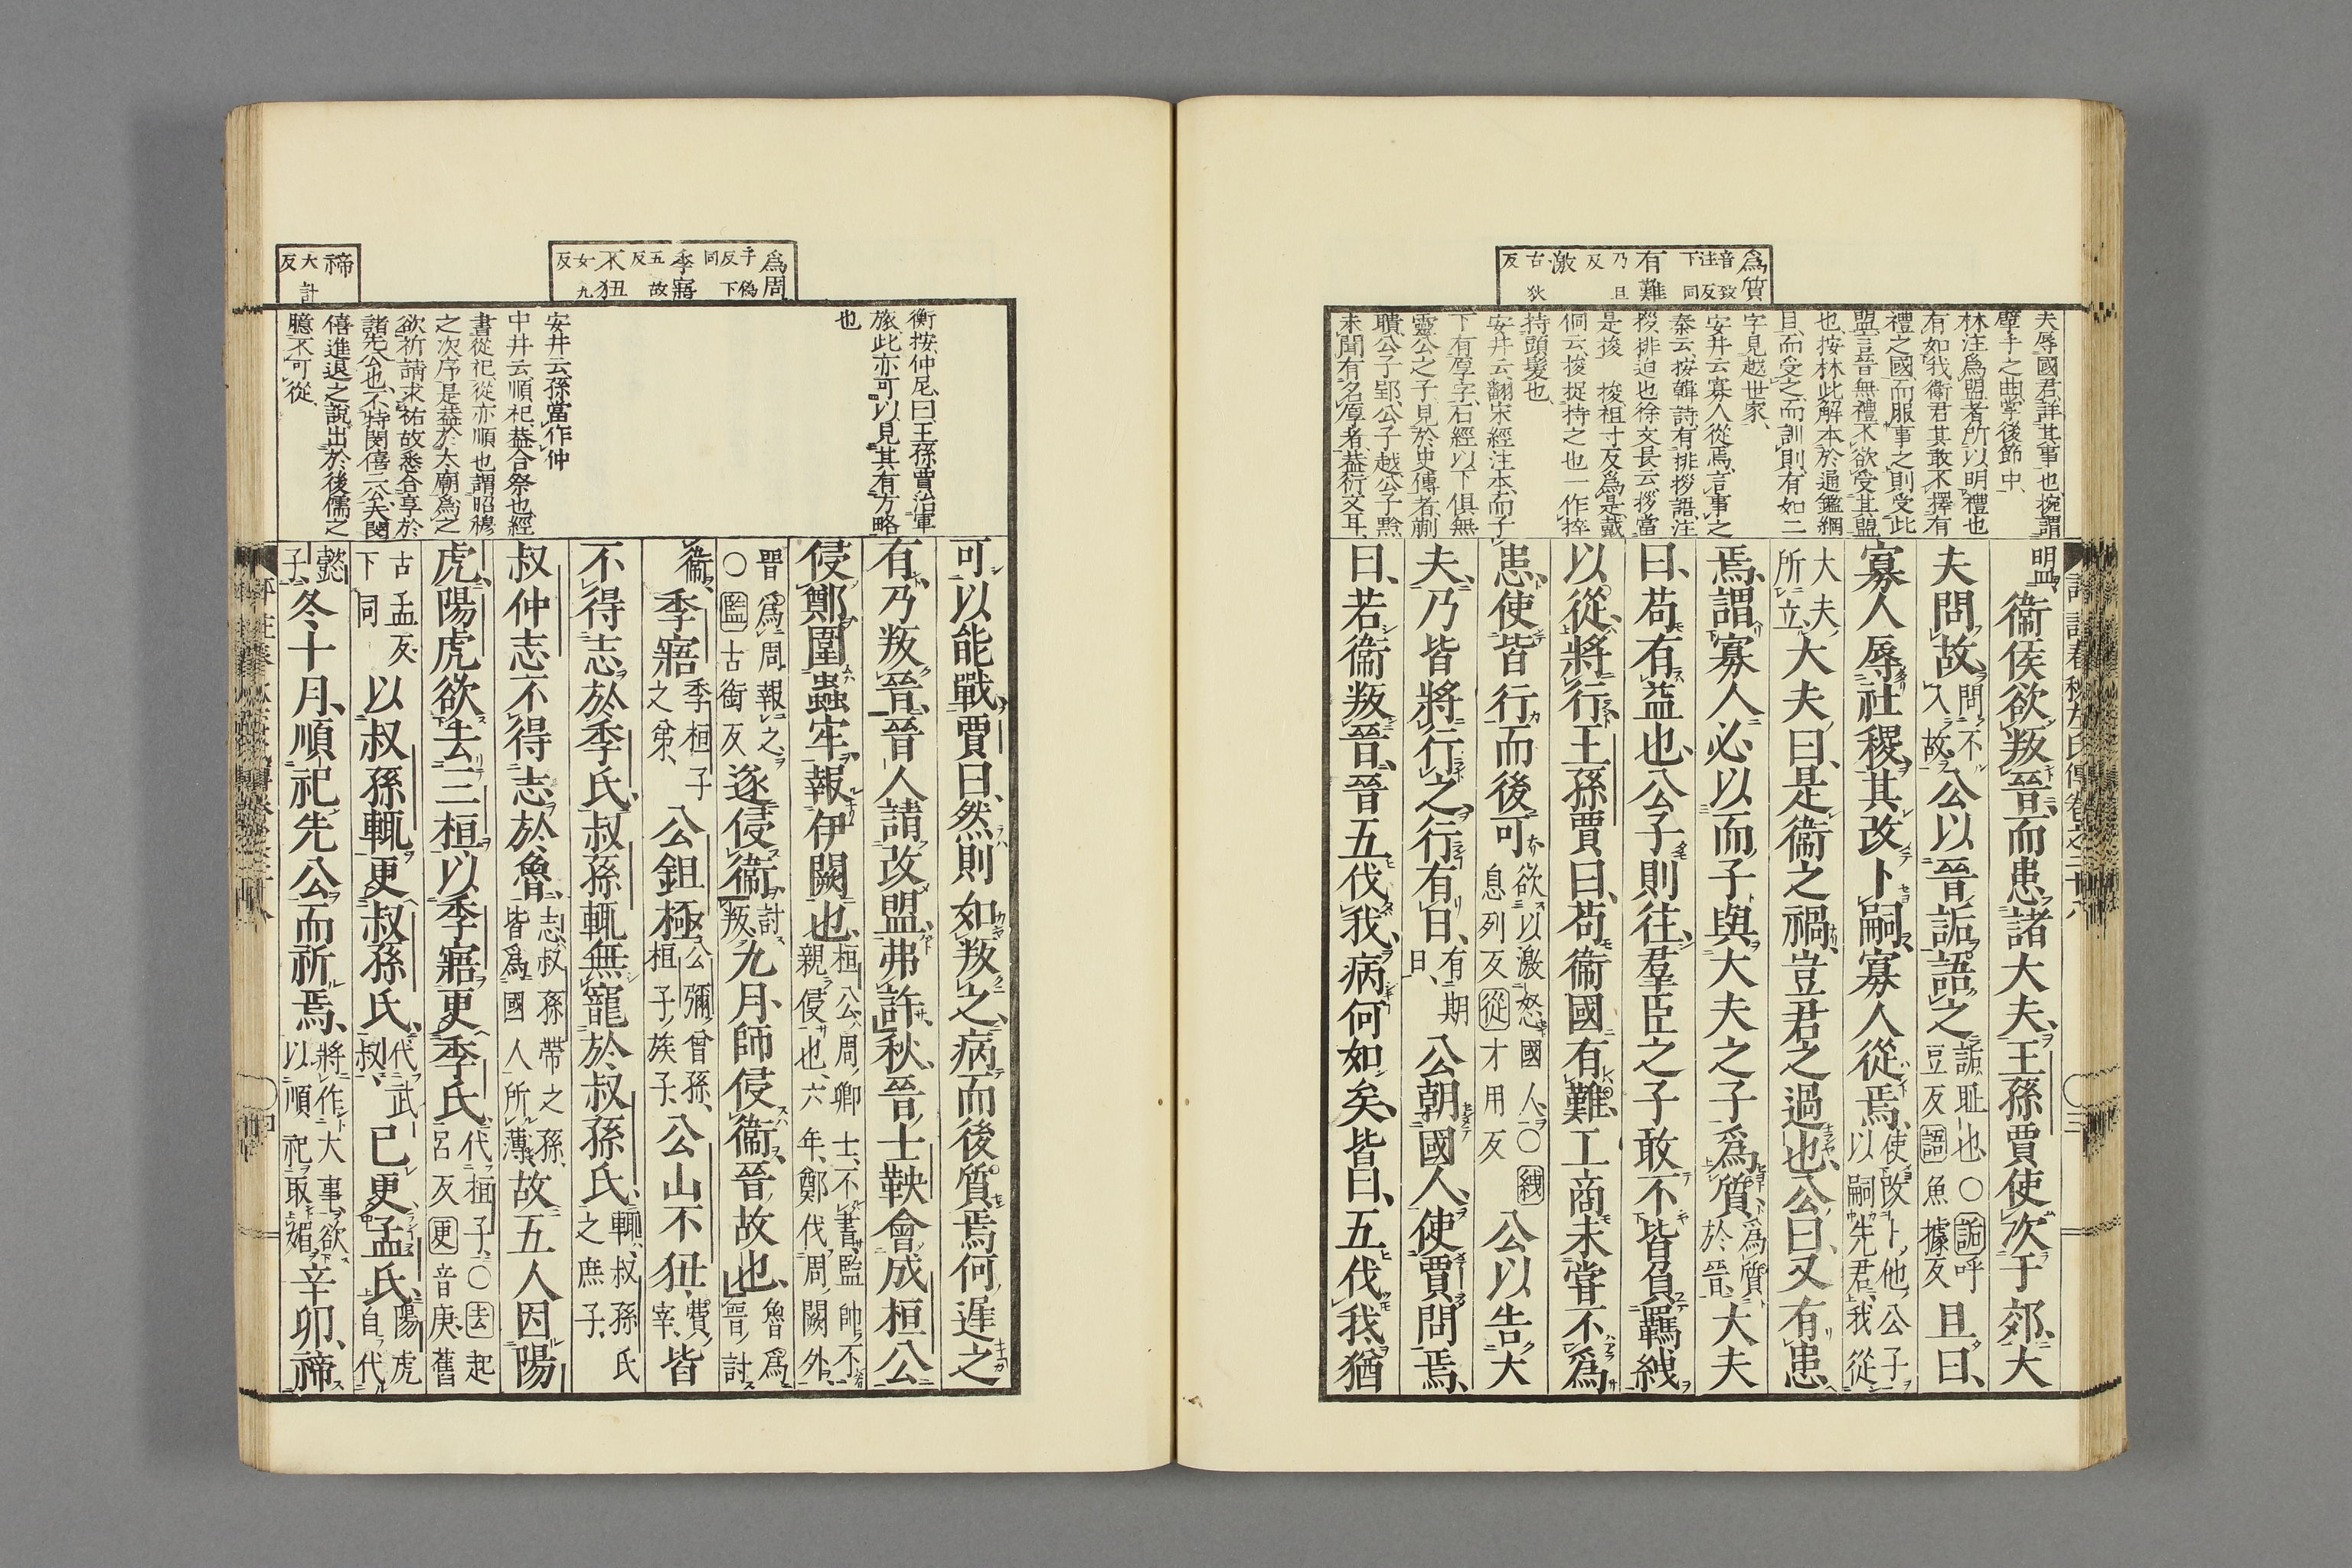 爲質
音致
注反
下同
有難
乃旦
反
激
古狄
反
夫辱國君詳其事也捥謂
擘手之曲掌後節中
林注爲盟者所以明禮也
有如我衞君其敢不擇有
禮之國而服事之則受此
盟言晉無禮不欲受其盟
也按林此解本於通鑑綱
目而受之而訓則有如二
字見越世家
安井云寡人從焉言事之
秦云按韓詩有排拶語注
拶排迫也徐文長云拶當
是捘 捘祖寸反爲是戴
侗云捘捉持之也一作捽
持頭髮也
安井云翻宋經注本而子
下有厚字石經以下俱無
靈公之子見於史傳者蒯
聵公子郢公子越公子黚
未聞有名厚者蓋衍文耳
明盟衞侯欲叛晉而患諸大夫王孫賈使次于郊大
夫問故問不入故公以晉詬語之詬耻也○詬呼豆反語魚據反且曰
寡人辱社稷其改卜嗣寡人從焉使改卜他公子以嗣先君我從
大夫所立大夫曰是衞之禍豈君之過也公曰又有患
焉謂寡人必以而子與大夫之子爲質爲質於晉大夫
曰苟有益也公子則往羣臣之子敢不皆負羈絏
以從將行王孫賈曰苟衞國有難工商未嘗不爲
患使皆行而後可欲以激怒國人○絏息列反從才用反公以告大
夫乃皆將行之行有日有期日公朝國人使賈問焉
曰若衞叛晉晉五伐我病何如矣皆曰五伐我猶
評註春秋左氏傳卷之二十八
三
爲周
于僞
反下
同
季寤
五故
反
不狃
女九
反
禘
大計
反
衡按仲尼曰王孫賈治軍
旅此亦可以見其有方略
也
安井云孫當作仲
中井云順祀蓋合祭也經
書從祀從亦順也謂昭穆
之次序是蓋於大廟爲之
欲祈請求祐故悉合享於
諸先公也不特閔僖二公夫閔
僖進退之說出於後儒之
臆不可從
可以能戰賈曰然則如叛之病而後質焉何遲之
有乃叛晉晉人請改盟弗許秋晉士鞅會成桓公
侵鄭圍蟲牢報伊闕也桓公周卿士不書監帥不親侵也六年鄭伐周闕外
晉爲周報之○監古銜反遂侵衞討叛九月師侵衞晉故也魯爲晉討
衞季寤季桓子之弟公鉏極公彌曾孫桓子族子公山不狃費宰皆
不得志於季氏叔孫輒無寵於叔孫氏輒叔孫氏之庶子
叔仲志不得志於魯志叔孫帶之孫皆爲國人所薄故五人因陽
虎陽虎欲去三桓以季寤更季氏代桓子○去起呂反更音庚舊
古孟反下同以叔孫輒更叔孫氏代武叔己更孟氏陽虎自代
懿子冬十月順祀先公而祈焉將作大事欲以順祀取媚辛卯禘